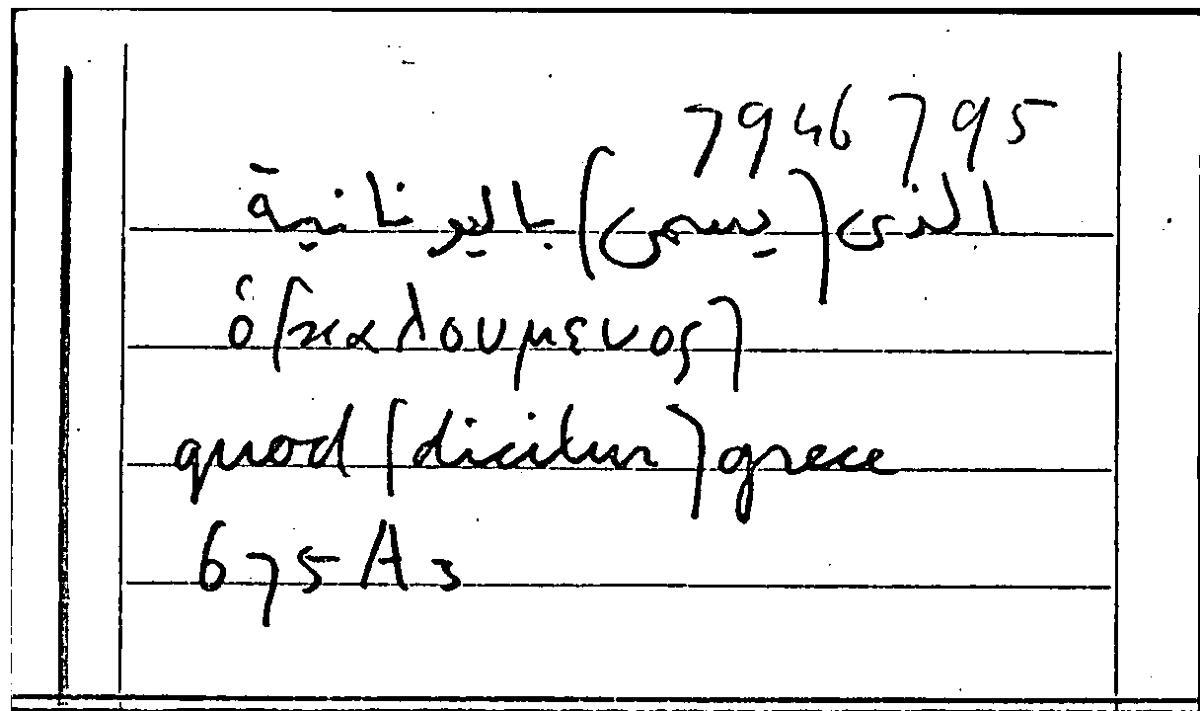 7946795
الذى (يسمى) باليونانية
ὁ (καλουμενος)
quod (dicitur) grece
675 A3